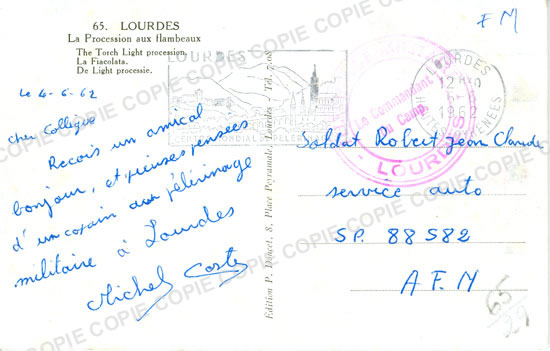 65. LOURDES
La Procession aux flambeaux
The Torch Light procession.
La Fiaccolata.
De Light processie.
Le 4-6-62
cher Collègue
Recois un amical
bonjour, et pieuses pensées
d'un copain au pélerinage
militaire à Lourdes
Michel Coste
Edition P. Doucet, 8, Place Peyramale, Lourdes - Tél. 7.08
LOURDES
LOURDES
1962
Le Commandant
du Camp
LOURDES
F M
Soldat Robert Jean Claude
service auto
SP. 88 582
A F N
65
COPIE COPIE COPIE COPIE COPIE